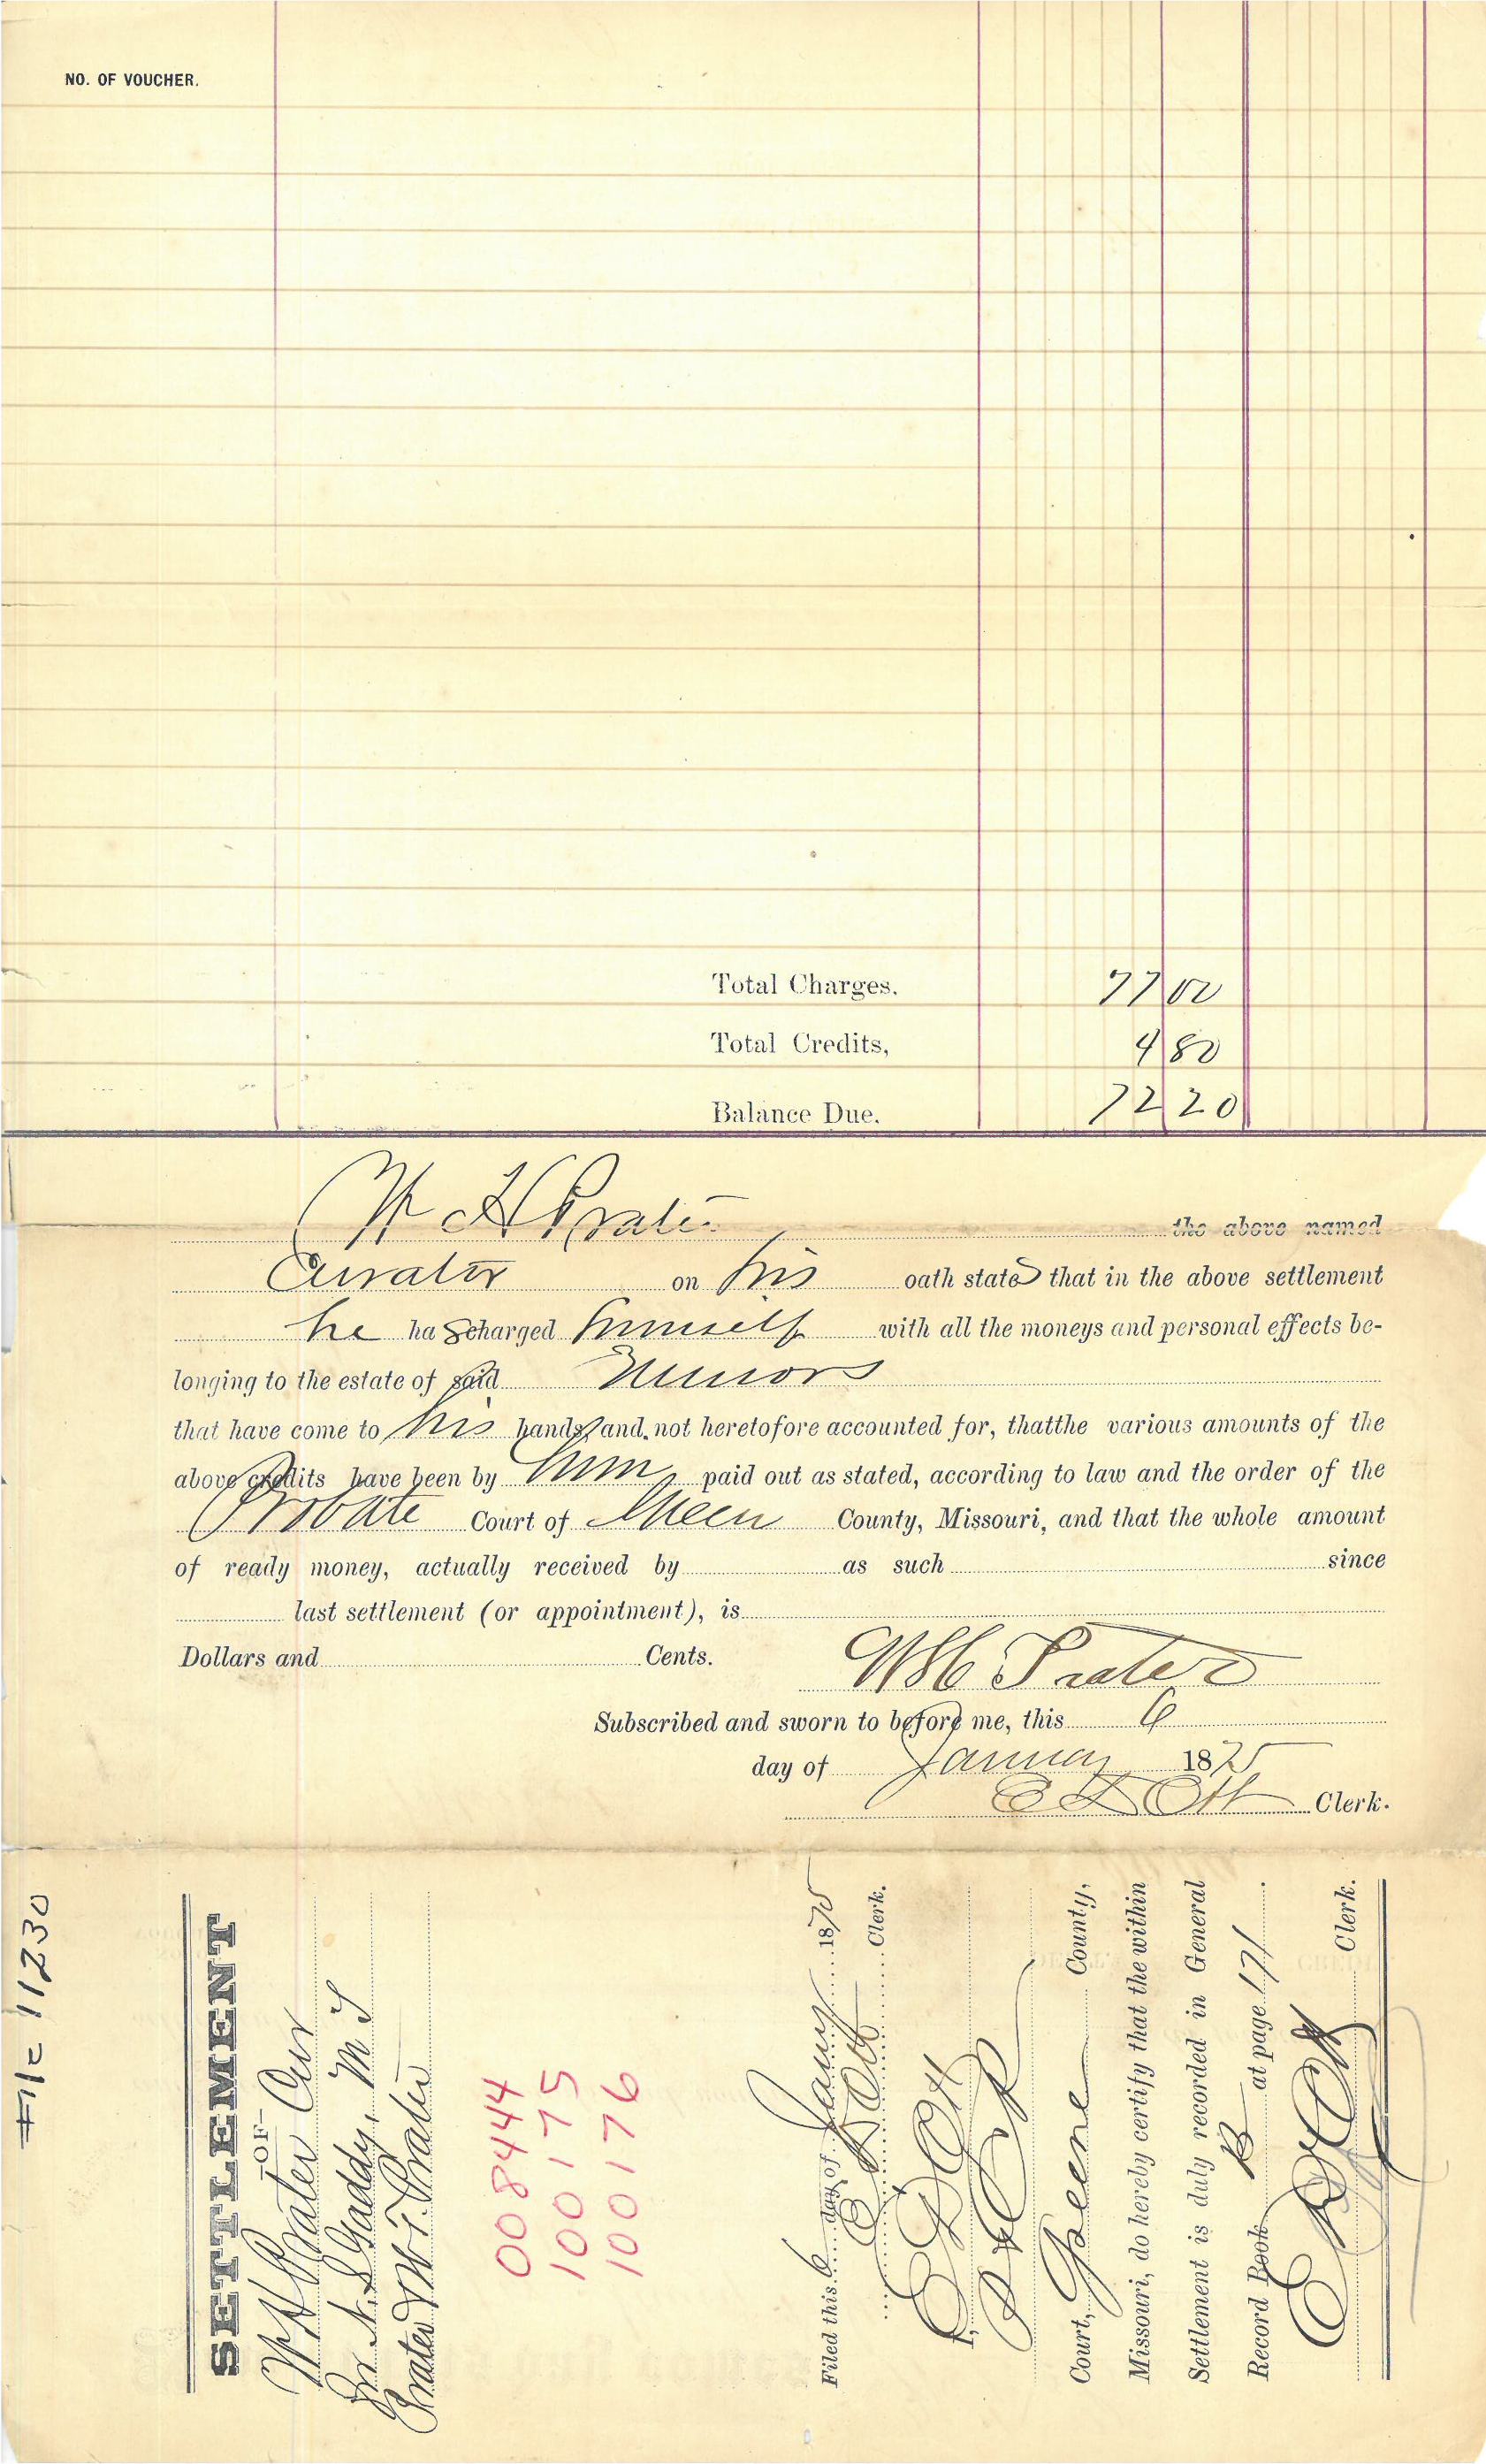 NO. OF VOUCHER.
Total Charges. 77 00
Total Credits, 4 80
Balance Due. 72 20
W H Prater the above named
Curator on his oath states that in the above settlement
he has charged himself with all the moneys and personal effects be-
longing to the estate of said Minors
that have come to his hands, and not heretofore accounted for, thatthe various amounts of the
above credits have been by him paid out as stated, according to law and the order of the
Probate Court of Green County, Missouri, and that the whole amount
of ready money, actually received by as such since
last settlement (or appointment), is
Dollars and Cents. W H Prater
Subscribed and sworn to before me, this 6
day of January 1875
E D Ott Clerk.
File 11230
SETTLEMENT
—OF—
W H Prater Cur
N. S Gaddy, M S
Prater & W. T. Prater
008444
100175
100176
Filed this 6 day of Jany 1875
E D Ott Clerk.
I, E D Ott
Court, Greene County,
Missouri, do hereby certify that the within
Settlement is duly recorded in General
Record Book B at page 171.
E D Ott Clerk.